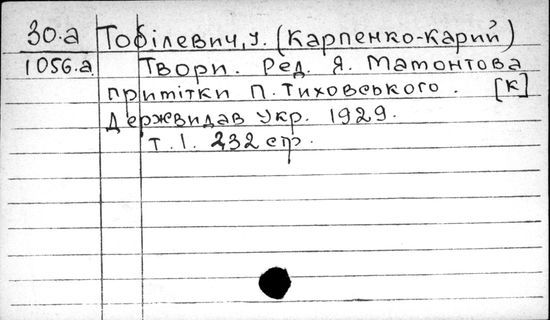 30.а Тобілевич, У. (Карпенко-Карий)
1056.а. Твори. Ред. Я. Мамонтова
примітки П. Тиховського. [К]
Державидав Укр. 1929.
т. 1. 232 стр.